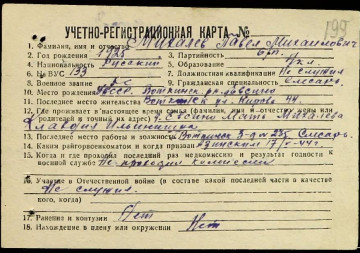 199
УЧЕТНО-РЕГИСТРАЦИОННАЯ КАРТА №
1. Фамилия, имя и отчество Михалев Павел Михайлович
2. Год рождения 1925 3. Партийность б/п
4. Национальность Русский 5. Образование 7 кл.
6. № ВУС 133 7. Должностная квалификация Не служил
8. Военное звание 9. Гражданская специальность слесарь
10. Место рождения Воткинск
11. Последнее место жительства Воткинск ул. Кирова 44
12. Где проживает в настоящее время семья (фамилия, имя и отчество жены или
родителей и точный адрес) Мать Михалева
Клавдия
13. Последнее место работы и должность Воткинск з-д № 235 Слесарь
14. Каким райгорвоенкоматом и когда призван 17/V-44г.
15. Когда и где проходил последний раз медкомиссию и результат годности к
военной службе Не проходил комиссии
16. Участие в Отечественной войне (в составе какой последней части в качестве
кого, когда) Не служил
17. Ранения и контузии Нет
18. Нахождение в плену или окружении Нет